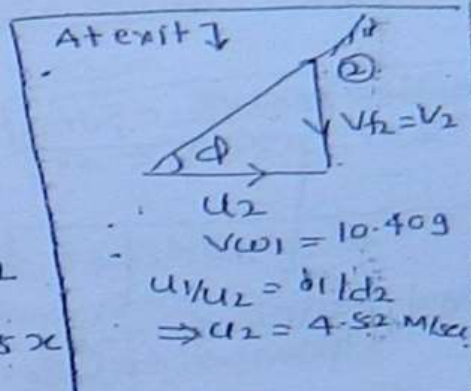 At exit ↓
②
Vf2 = V2
ϕ
U2
Vw1 = 10.409
U1/U2 = D1/d2
5x
⇒ U2 = 4.52 M/sec